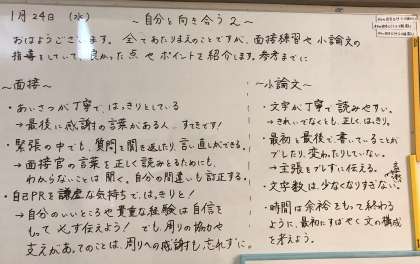 1月24日（水）
～自分と向き合う2～
おはようございます。全てあたりまえのことですが、面接練習や小論文の
指導をしていて、良かった点やポイントを紹介します。参考までに
～面接～
・あいさつが丁寧で、はっきりとしている
→最後に感謝の言葉がある人、すてきです!
・緊張の中でも、質問を聞き返したり、言い直しができる。
→面接官の言葉を正しく読みとるためにも、
わからないことは聞く。自分の間違いも訂正する。
・自己PRを謙虚な気持ちで、はっきりと!
→自分のいいところや貴重な経験は自信を
もって必ず伝えよう! でも、周りの協力や
支えがあってのことは、周りへの感謝も忘れずに。
～小論文～
・文字が丁寧で読みやすい。
→きれいでなくとも、正しく、はっきり。
・最初と最後で、書いていることが
ブレたり、変わたりしていない。
→主張をブレずに伝える。
・文字数は、少なくなりすぎない。
・時間は余裕をもって終わる
ように、最初にすばやく文の構成
を考えよう。